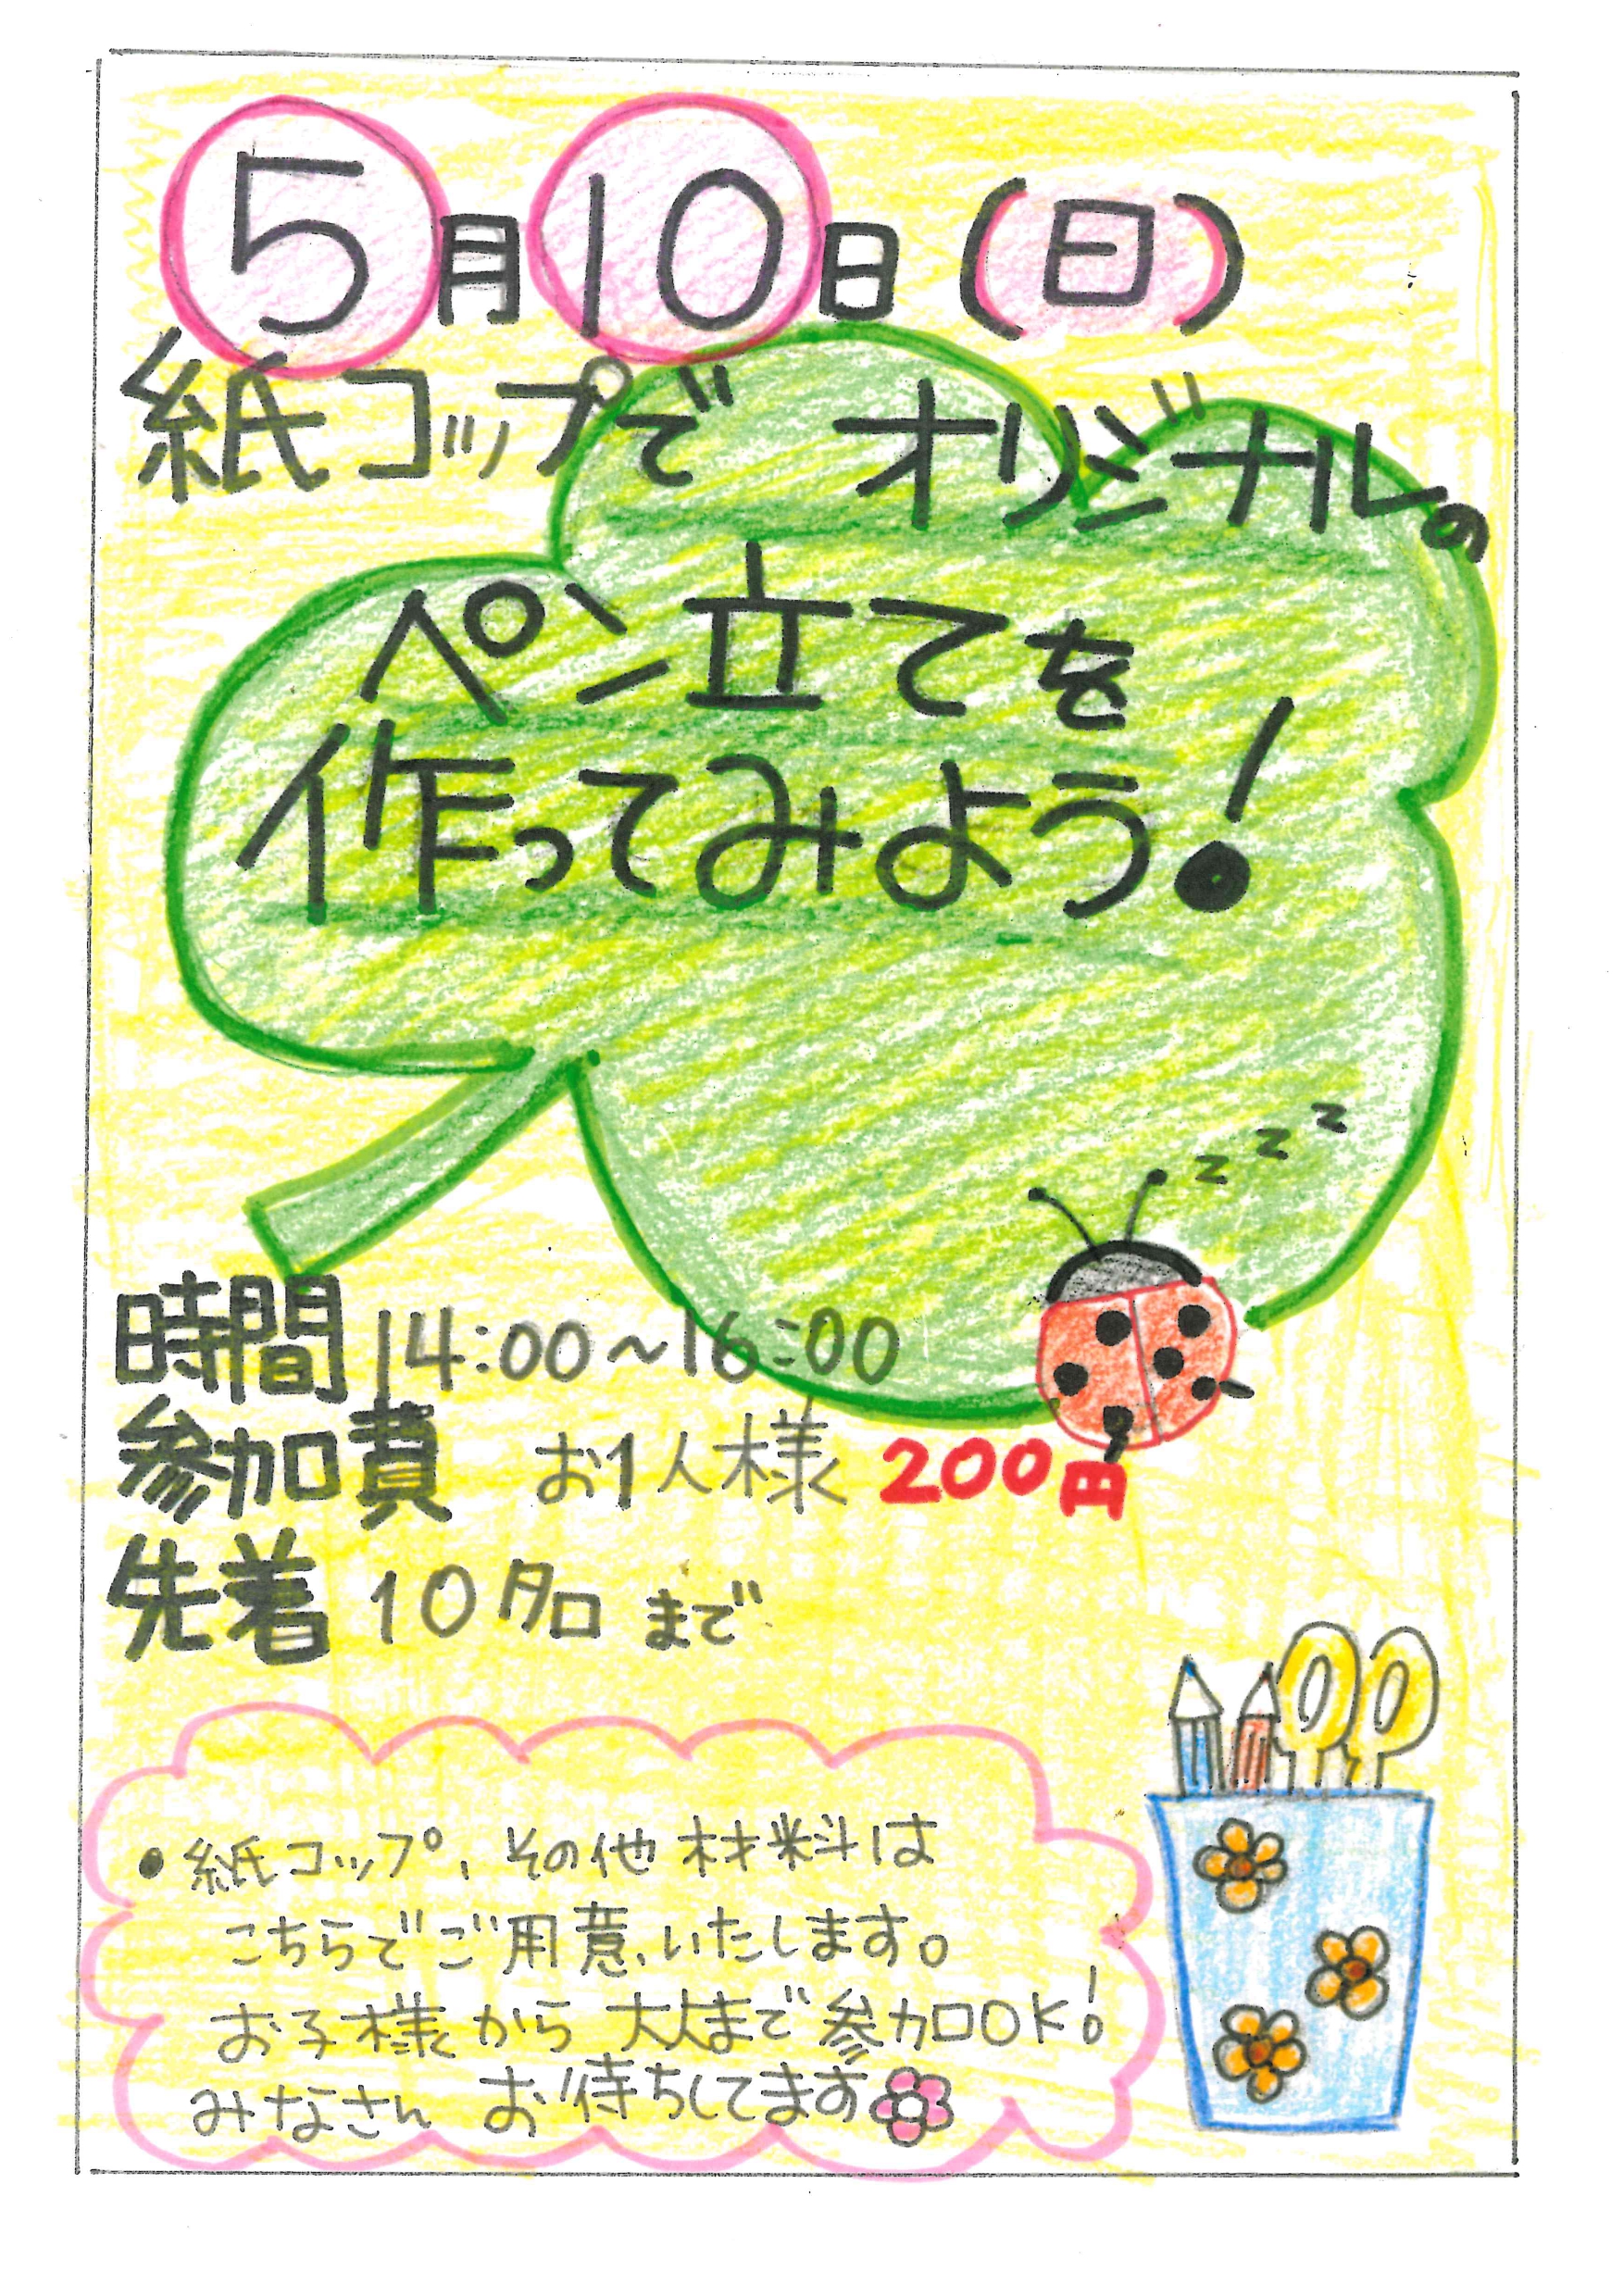 5月10日(日)
紙コップで オリジナルの
ペン立てを
作ってみよう!
z z z
時間 14:00~16:00
参加費 お1人様 200円
先着 10名まで
• 紙コップ、その他材料は
こちらでご用意いたします。
お子様から大人まで参加OK!
みなさん お待ちしてます